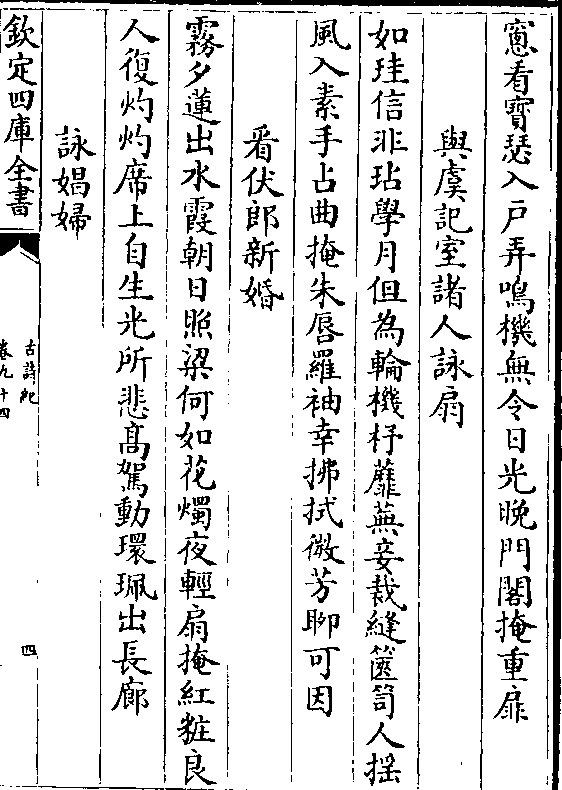 窻看寳瑟入戸弄鳴機無令日光晚門閣掩重扉
與虞記室諸人詠扇
如珪信非玷學月但為輪機杼蘼蕪妾裁縫篋笥人揺
風入素手占曲掩朱唇羅袖幸拂拭微芳聊可因
看伏郎新婚
霧夕蓮出水霞朝日照梁何如花燭夜輕扇掩紅粧良
人復灼灼席上自生光所悲髙駕動環珮出長廊
詠娼婦
欽定四庫全書
古詩紀
卷九十四
四